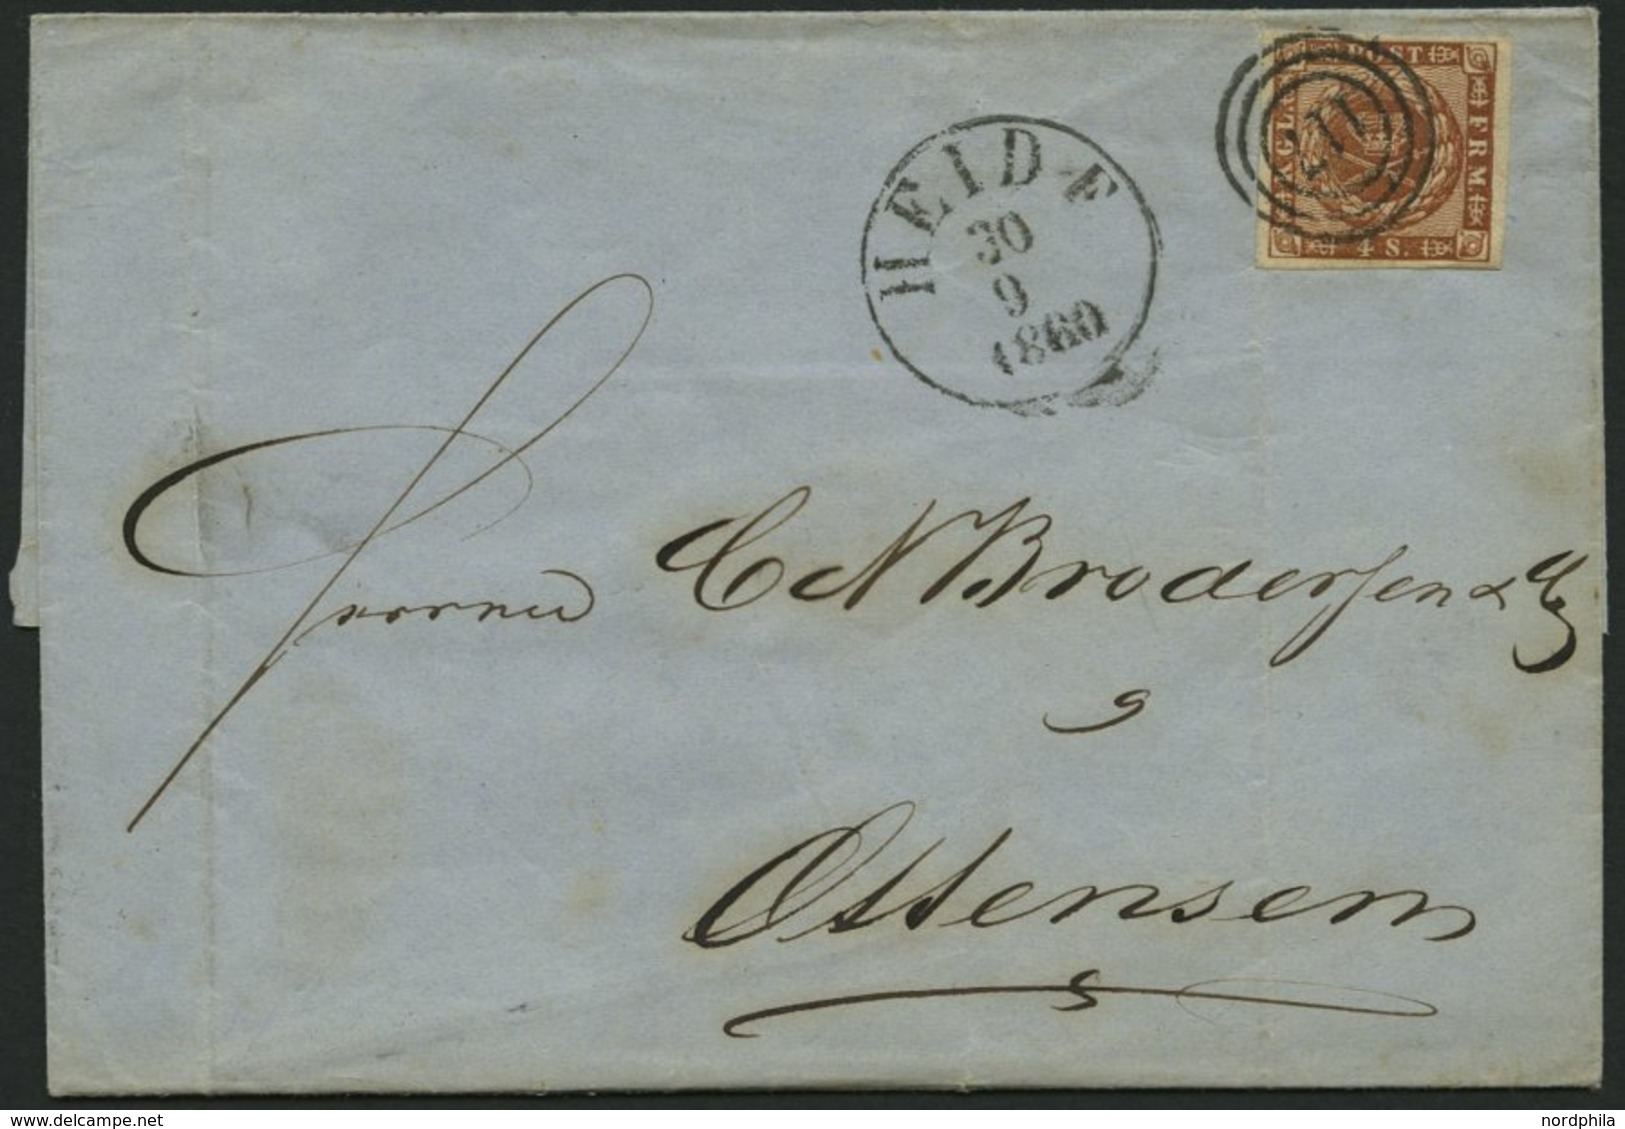 KGL. POST FRM.
4 S.
HEIDE
30
9
1860
Herren C N Brodersen & Co
Ottensen
akpool.co.uk
nordphila